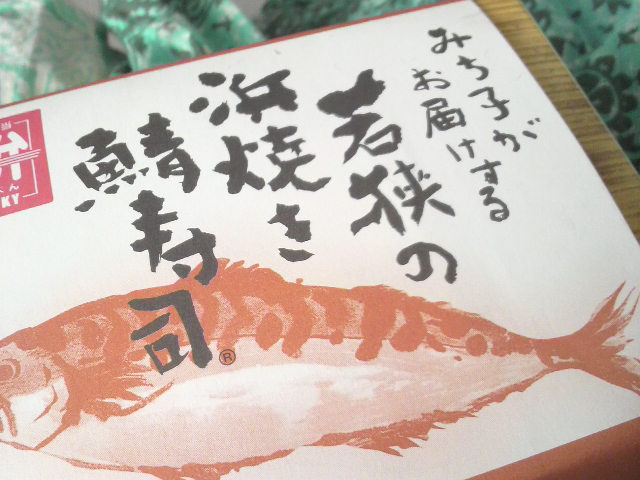 みち子が
お届けする
若狭の
浜焼き
鯖寿司®